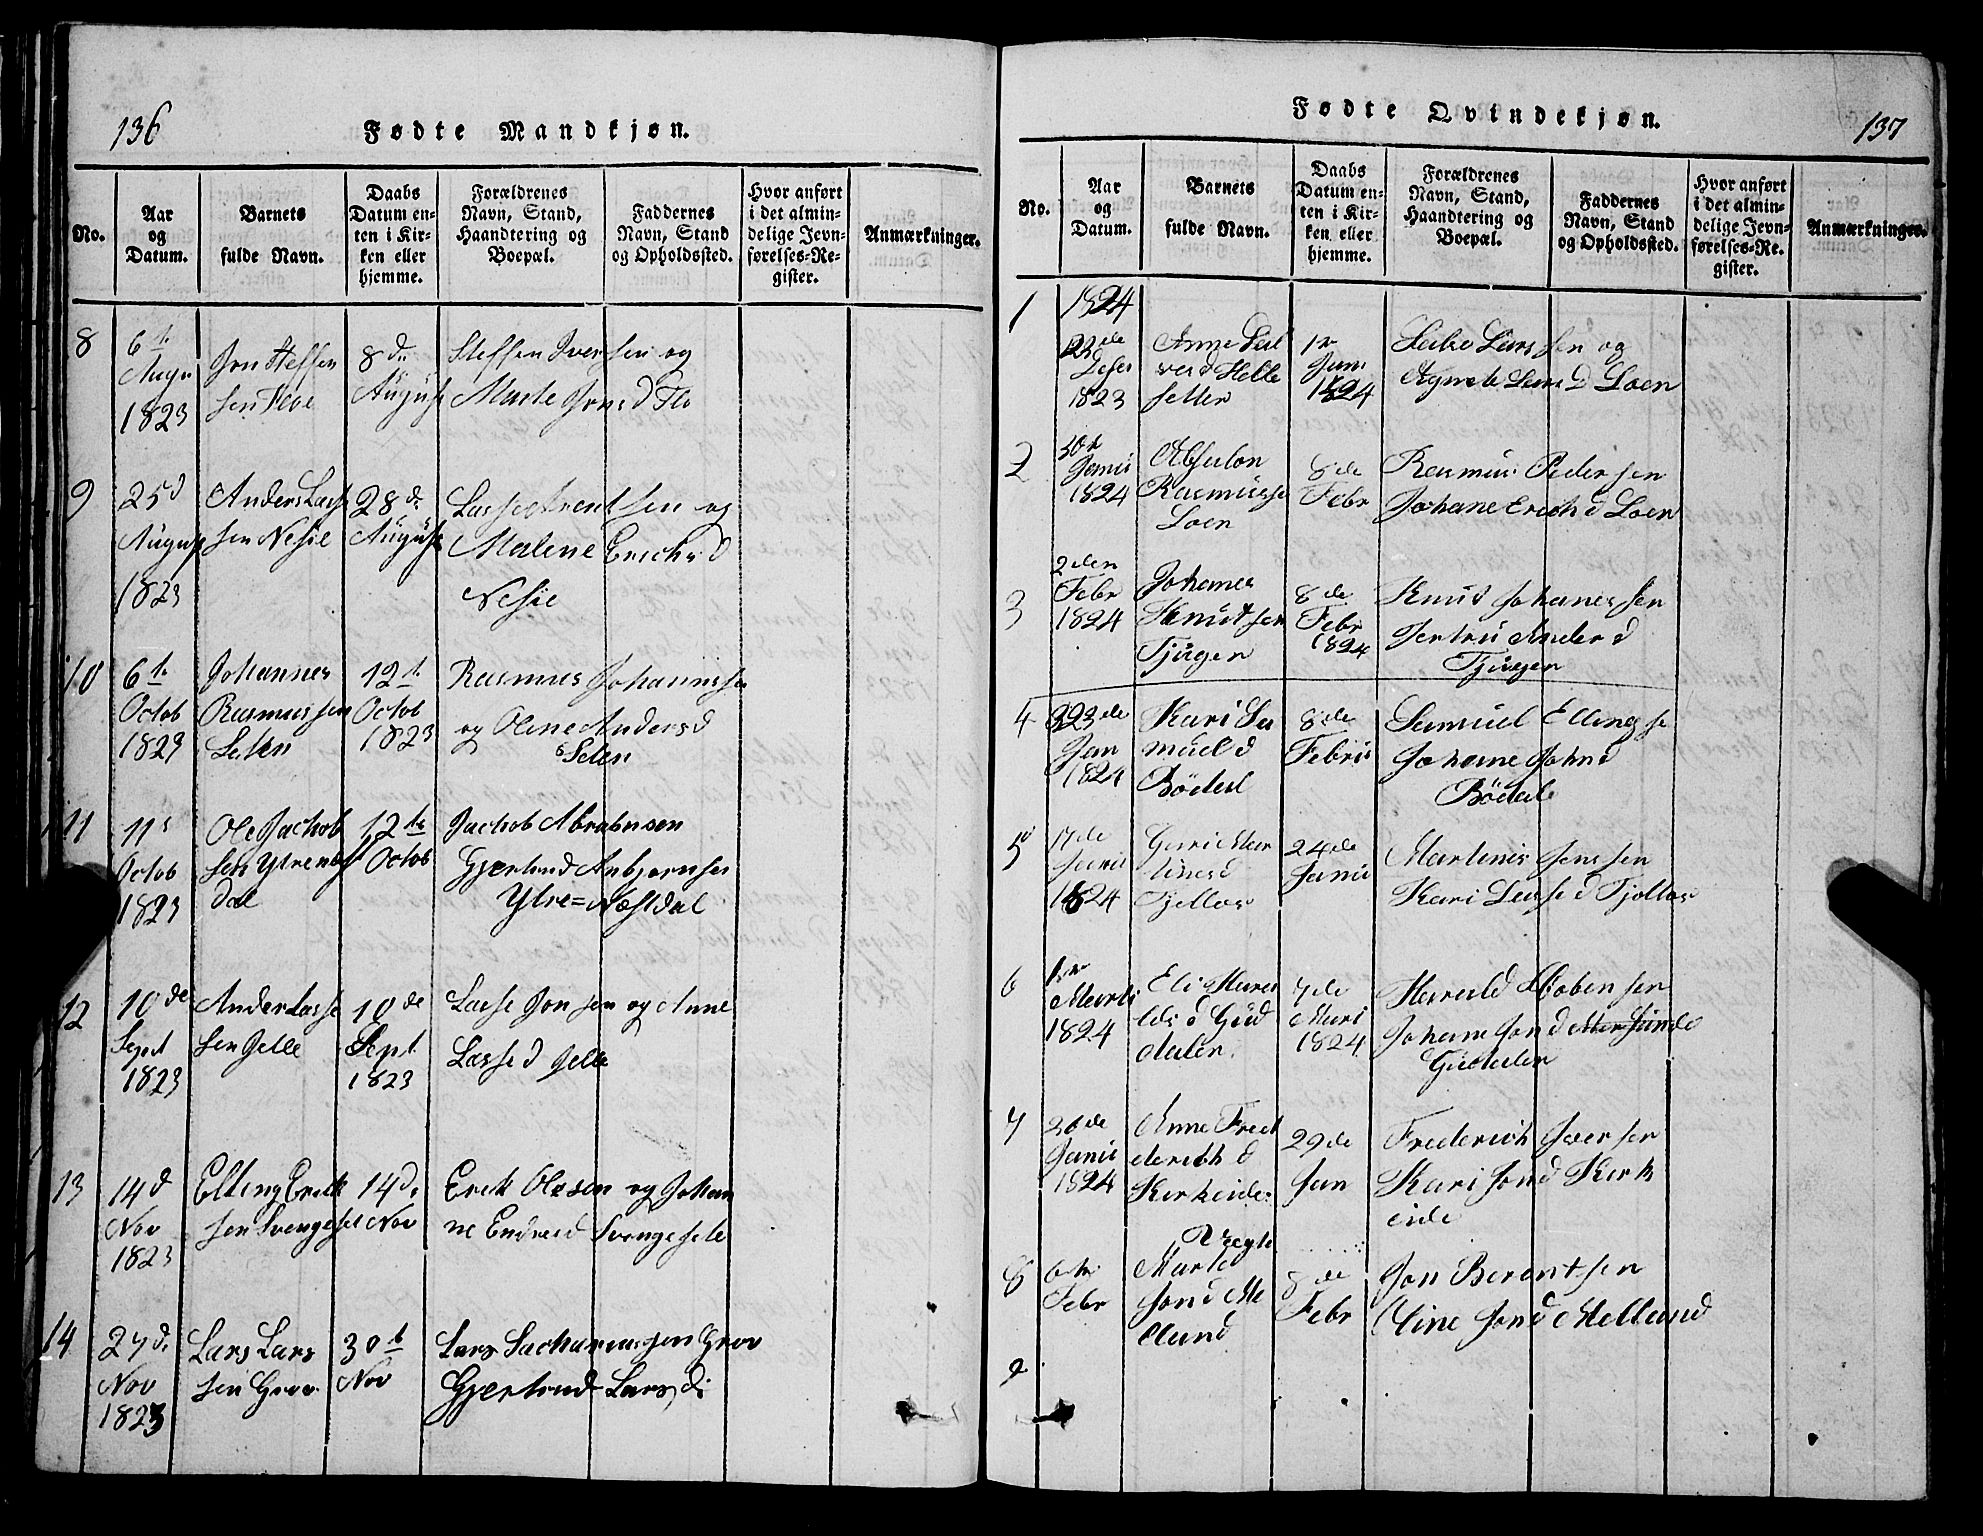 136
Fødte Mandkjøn.
No.
Aar
og
Datum.
Barnets
fulde Navn.
Daabs
Datum en-
ten i Kir-
ken eller
hjemme.
Forældrenes
Navn, Stand,
Haandtering og
Boepæl.
Faddernes
Navn, Stand
og Opholdssted.
Hvor anført
i det almin-
delige Jevn-
førelses-Re-
gister.
Anmærkninger.
8
6te
Augu
1823
Jon Steffen
sen Floe
8de
August
Steffen Iversen og
Marte Jonsd Flo
9
25d
August
1823
Anders Lasse
sen Nesie
28de
August
Lasse Arentsen og
Malene Erichsd
Nesie
10
6te
Octob
1823
Johannes
Rasmussen
Seten
12te
Octob
1823
Rasmus Johannssen
og Oline Andersd
Seten
11
11te
Octob
1823
Ole Jachob
sen Ytrenæst
dal
12te
Octob
Jachob Abrahmsen
Gjertrud Anbjørnsen
Ytre=Næstdal
12
10de
Sept
1823
Ander Lasse
sen Gelle
10de
Sept
1823
Lasse Jonsen og Anne
Lasse d Gelle
13
14d
Nov
1823
Elling Erick
sen Svengeset
14de
Nov
Erick Olesen og Johan
ne Endresd Svengesete
14
27de
Nov
1823
Lars Lars
sen Grov
30te
Nov
Lars Sachariassen Grov
Gjertrud Larsd
137
Fødte Qvindekjøn.
No.
Aar
og
Datum.
Barnets
fulde Navn.
Daabs
Datum en-
ten i Kir-
ken eller
hjemme.
Forældrenes
Navn, Stand,
Haandtering og
Boepæl.
Faddernes
Navn, Stand
og Opholdssted.
Hvor anført
i det almin-
delige Jevn-
førelses-Re-
gister.
Anmærkninger.
1
1824
23de
1823
Anne
Helle
setter
1te
Janu
1824
Larssen og
Agnete Lars d Loen
2
30te
Janu
1824
Absalon
Rasmusse
Loen
8de
Febr
Rasmus Pedersen
Johane Erich d Loen
3
2den
Febr
1824
Johanes
Knutsen
Tjugen
8de
Febr
1824
Knud Johanessen
Jertru Ander d
Tjugen
4
23de
Jan
1824
Kari Sa
muel d
Bödal
8de
Febru
Samuel Ellingse
Johane John d
Bödal
5
17de
Janu
1824
Guri Mar
tines d
Tjellos
24de
Janu
Martinus Jenssen
Kari Lasse d Tjellos
6
1te
Marti
1824
Eli Hara
lds d Gud
dalen
7de
Mari
1824
Harald Jlobensen
Johane Jon d
Guddalen
7
26de
Janu
1824
Anne Fred
derich d
Kirkeide
29de
Jan
Frederich Iversen
Kari Jon d Kirk
eide
8
6te
Febr
Uægte
Marte
Jon d Me
lland
8de
Febr
Jon Berentsen
Eline Jon d Melland
9